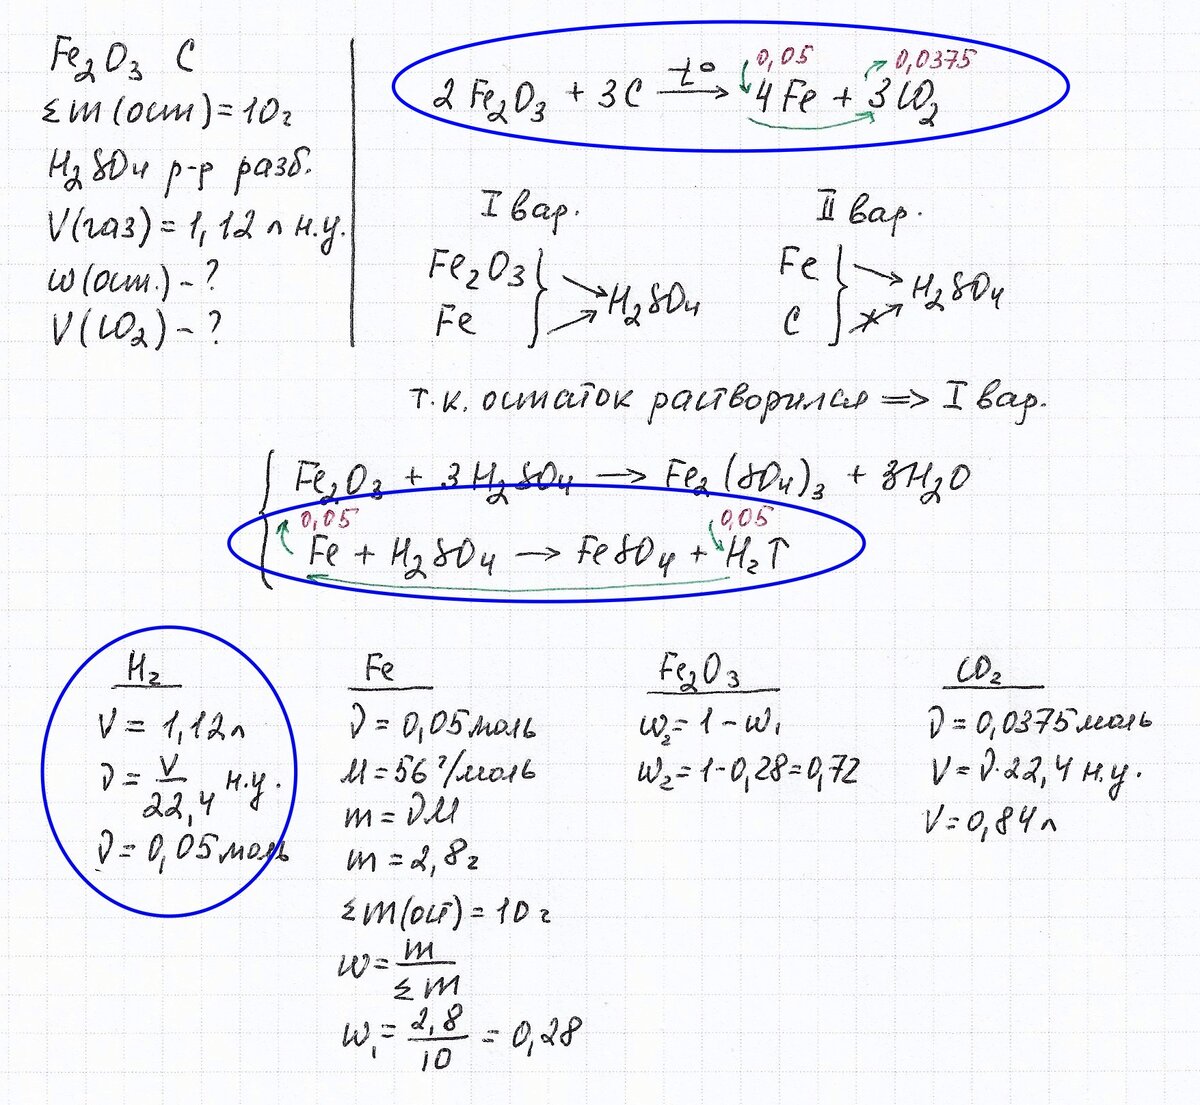 Fe₂O₃ C
Σm(ост)=10г
H₂SO₄ р-р разб.
V(газ)=1,12л н.у.
w(ост.)-?
V(CO₂)-?
0,05 0,0375
2Fe₂O₃ + 3C t° → 4Fe + 3CO₂
I вар. II вар.
Fe₂O₃ Fe
H₂SO₄ H₂SO₄
Fe C
т.к. остаток растворился => I вар.
Fe₂O₃ + 3H₂SO₄ → Fe₂(SO₄)₃ + 3H₂O
0,05 0,05
Fe + H₂SO₄ → FeSO₄ + H₂↑
H₂
V = 1,12л
ν = V/22,4 н.у.
ν = 0,05моль
Fe
ν = 0,05моль
M = 56 г/моль
m = νM
m = 2,8г
Σm(ост) = 10г
w = m/Σm
w₁ = 2,8/10 = 0,28
Fe₂O₃
w₂ = 1 - w₁
w₂ = 1-0,28=0,72
CO₂
ν = 0,0375моль
V = ν·22,4 н.у.
V = 0,84л